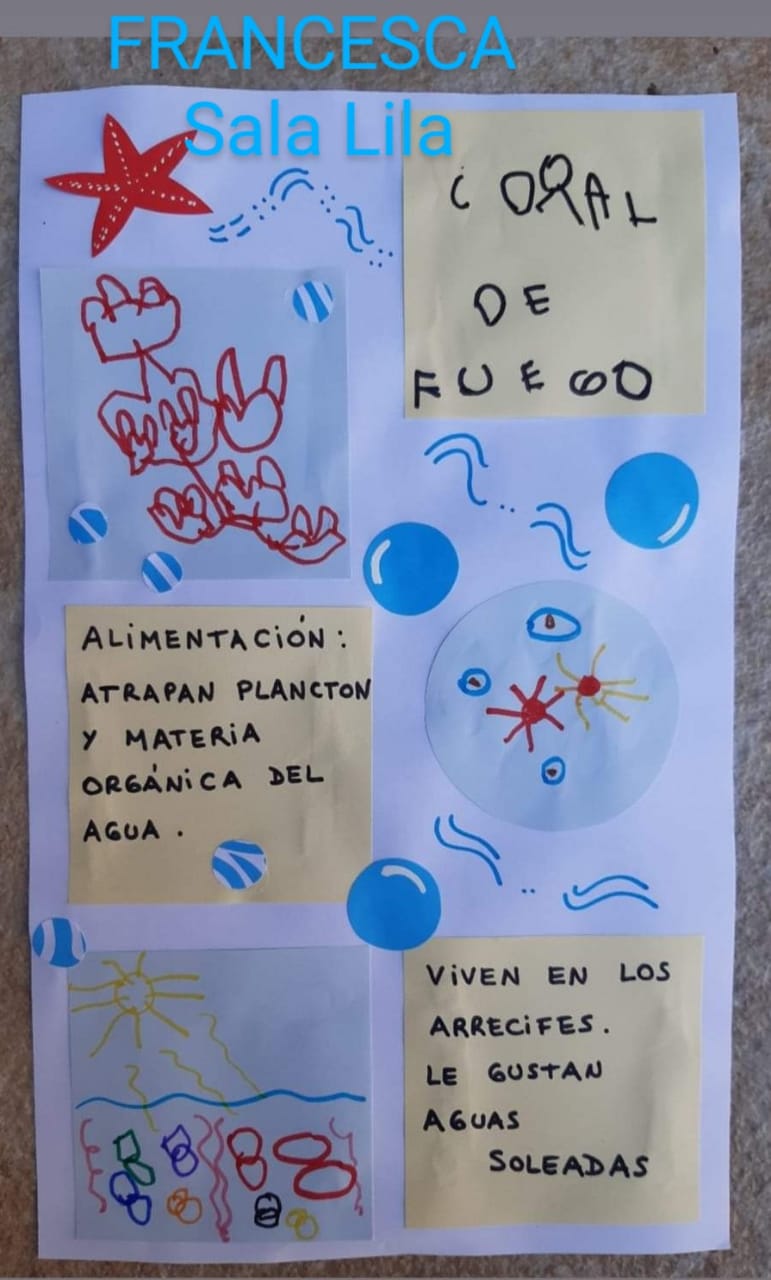 FRANCESCA
Sala Lila
CORAL
DE
FUEGO
ALiMENTACiÓN:
ATRAPAN PLANCTON
Y MATERiA
ORGÁNiCA DEL
AGUA.
ViVEN EN LOS
ARRECiFES.
LE GUSTAN
AGUAS
SOLEADAS